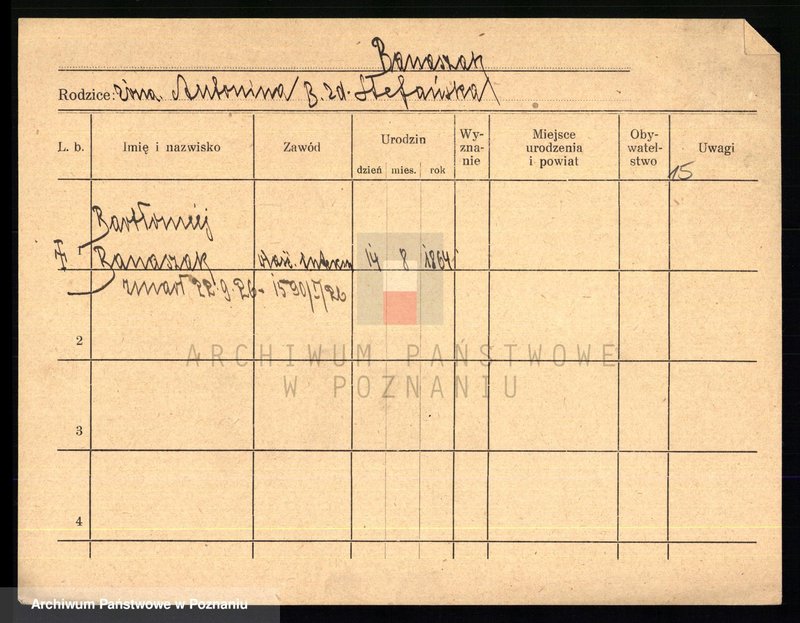 Banaszak
Rodzice: żona Antonina B. zd. Stefańska
L. b. Imię i nazwisko Zawód Urodzin dzień mies. rok Wy-zna-nie Miejsce urodzenia i powiat Oby-watel-stwo Uwagi
15
Bartłomiej
1 Banaszak właś. 14 8 1864
zmarł 22.9.26 - 1590/I/26
2
ARCHIWUM PAŃSTWOWE
W POZNANIU
3
4
Archiwum Państwowe w Poznaniu